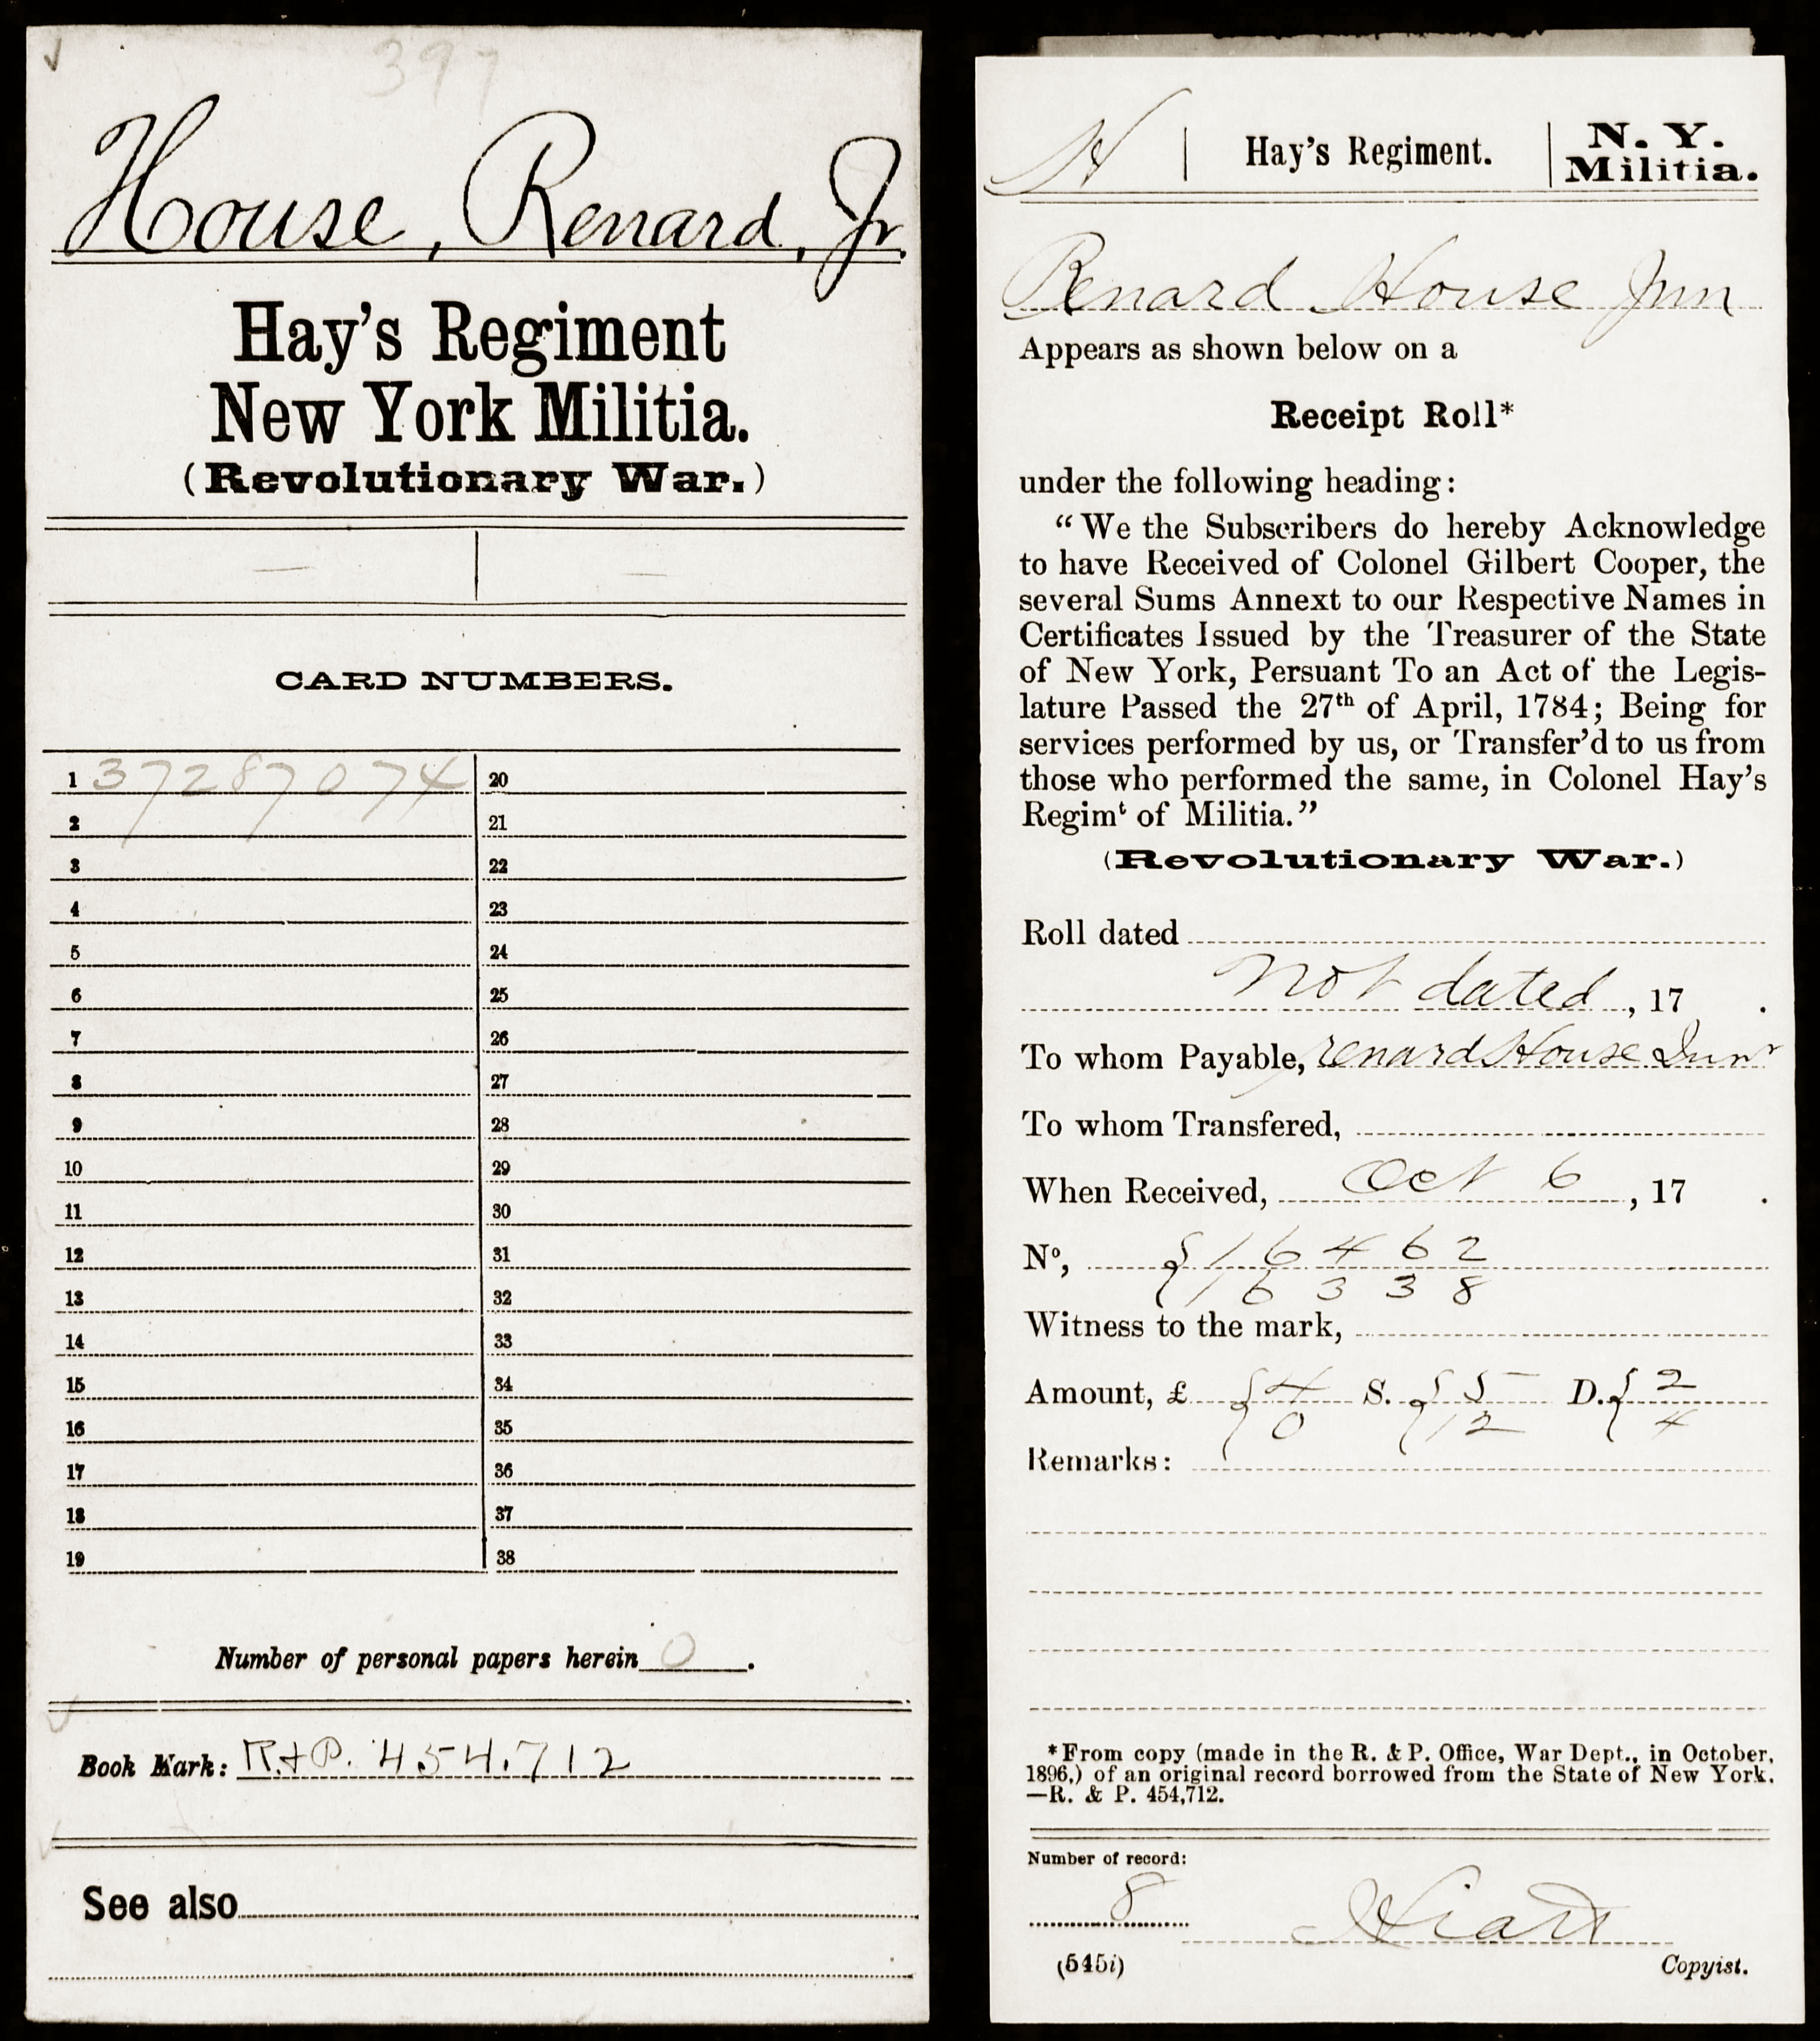 397
House, Renard, Jr.
Hay's Regiment
New York Militia.
(Revolutionary War.)
CARD NUMBERS.
1 37287074 20
2 21
3 22
4 23
5 24
6 25
7 26
8 27
9 28
10 29
11 30
12 31
13 32
14 33
15 34
16 35
17 36
18 37
19 38
Number of personal papers herein 0.
Book Mark: R. & P. 454,712
See also
H | Hay's Regiment. | N. Y. Militia.
Renard House Jun
Appears as shown below on a
Receipt Roll*
under the following heading:
“We the Subscribers do hereby Acknowledge
to have Received of Colonel Gilbert Cooper, the
several Sums Annext to our Respective Names in
Certificates Issued by the Treasurer of the State
of New York, Persuant To an Act of the Legis-
lature Passed the 27th of April, 1784; Being for
services performed by us, or Transfer'd to us from
those who performed the same, in Colonel Hay's
Regimt of Militia.”
(Revolutionary War.)
Roll dated
not dated, 17 .
To whom Payable, renard House Junr
To whom Transfered,
When Received, Oct 6, 17 .
No, { 16462
{ 16338
Witness to the mark,
Amount, £ { 4 S. { 5 D. { 2
{ 0 { 12 { 4
Remarks:
*From copy (made in the R. & P. Office, War Dept., in October,
1896,) of an original record borrowed from the State of New York.
—R. & P. 454,712.
Number of record:
8
(545i) Copyist.